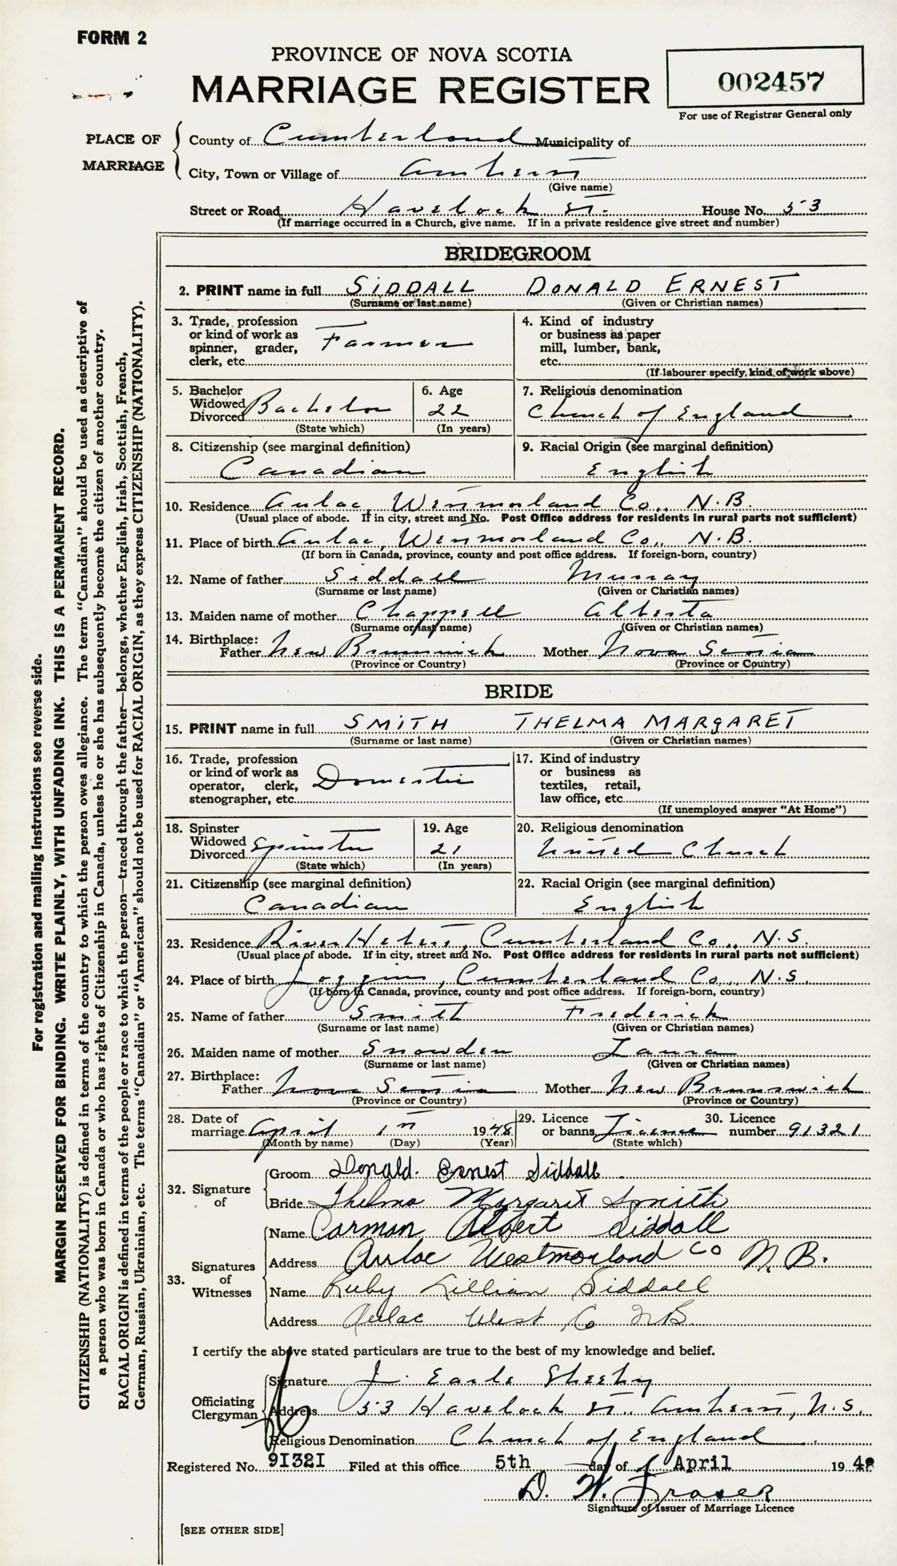 FORM 2
PROVINCE OF NOVA SCOTIA
MARRIAGE REGISTER
002457
For use of Registrar General only
PLACE OF MARRIAGE
County of Cumberland Municipality of
City, Town or Village of Amherst
(Give name)
Street or Road Havelock St. House No. 53
(If marriage occurred in a Church, give name. If in a private residence give street and number)
BRIDEGROOM
2. PRINT name in full SIDDALL DONALD ERNEST
(Surname or last name) (Given or Christian names)
3. Trade, profession or kind of work as spinner, grader, clerk, etc. Farmer
4. Kind of industry or business as paper mill, lumber, bank, etc.
(If labourer specify, kind of work above)
5. Bachelor Widowed Divorced Bachelor
(State which)
6. Age 22
(In years)
7. Religious denomination
Church of England
8. Citizenship (see marginal definition)
Canadian
9. Racial Origin (see marginal definition)
English
10. Residence Aulac Westmorland Co., N.B.
(Usual place of abode. If in city, street and No. Post Office address for residents in rural parts not sufficient)
11. Place of birth Aulac, Westmorland Co., N.B.
(If born in Canada, province, county and post office address. If foreign-born, country)
12. Name of father Siddall Murray
(Surname or last name) (Given or Christian names)
13. Maiden name of mother Chappell Alberta
(Surname or last name) (Given or Christian names)
14. Birthplace:
Father New Brunswick Mother Nova Scotia
(Province or Country) (Province or Country)
BRIDE
15. PRINT name in full SMITH THELMA MARGARET
(Surname or last name) (Given or Christian names)
16. Trade, profession or kind of work as operator, clerk, stenographer, etc. Domestic
17. Kind of industry or business as textiles, retail, law office, etc.
(If unemployed answer "At Home")
18. Spinster Widowed Divorced Spinster
(State which)
19. Age 21
(In years)
20. Religious denomination
United Church
21. Citizenship (see marginal definition)
Canadian
22. Racial Origin (see marginal definition)
English
23. Residence River Hebert, Cumberland Co., N.S.
(Usual place of abode. If in city, street and No. Post Office address for residents in rural parts not sufficient)
24. Place of birth Joggins, Cumberland Co., N.S.
(If born in Canada, province, county and post office address. If foreign-born, country)
25. Name of father Smith Frederick
(Surname or last name) (Given or Christian names)
26. Maiden name of mother Snowden
(Surname or last name) (Given or Christian names)
27. Birthplace:
Father Nova Scotia Mother New Brunswick
(Province or Country) (Province or Country)
28. Date of marriage April 1st 1948
(Month by name) (Day) (Year)
29. Licence or banns Licence
(State which)
30. Licence number 91321
32. Signature of
Groom Donald Ernest Siddall
Bride Thelma Margaret Smith
33. Signatures of Witnesses
Name Carman Albert Siddall
Address Aulac Westmorland Co N.B.
Name Ruby Lillian Siddall
Address Aulac West Co NB
I certify the above stated particulars are true to the best of my knowledge and belief.
Officiating Clergyman
Signature J. Earle Sheehy
Address 53 Havelock St. Amherst, N.S.
Religious Denomination Church of England
Registered No. 91321 Filed at this office 5th day of April 1948
D. W. Fraser
Signature of Issuer of Marriage Licence
[SEE OTHER SIDE]
For registration and mailing instructions see reverse side.
MARGIN RESERVED FOR BINDING. WRITE PLAINLY, WITH UNFADING INK. THIS IS A PERMANENT RECORD.
CITIZENSHIP (NATIONALITY) is defined in terms of the country to which the person owes allegiance. The term "Canadian" should be used as descriptive of
a person who was born in Canada or who has rights of Citizenship in Canada, unless he or she has subsequently become the citizen of another country.
RACIAL ORIGIN is defined in terms of the people or race to which the person—traced through the father—belongs, whether English, Irish, Scottish, French,
German, Russian, Ukrainian, etc. The terms "Canadian" or "American" should not be used for RACIAL ORIGIN, as they express CITIZENSHIP (NATIONALITY).